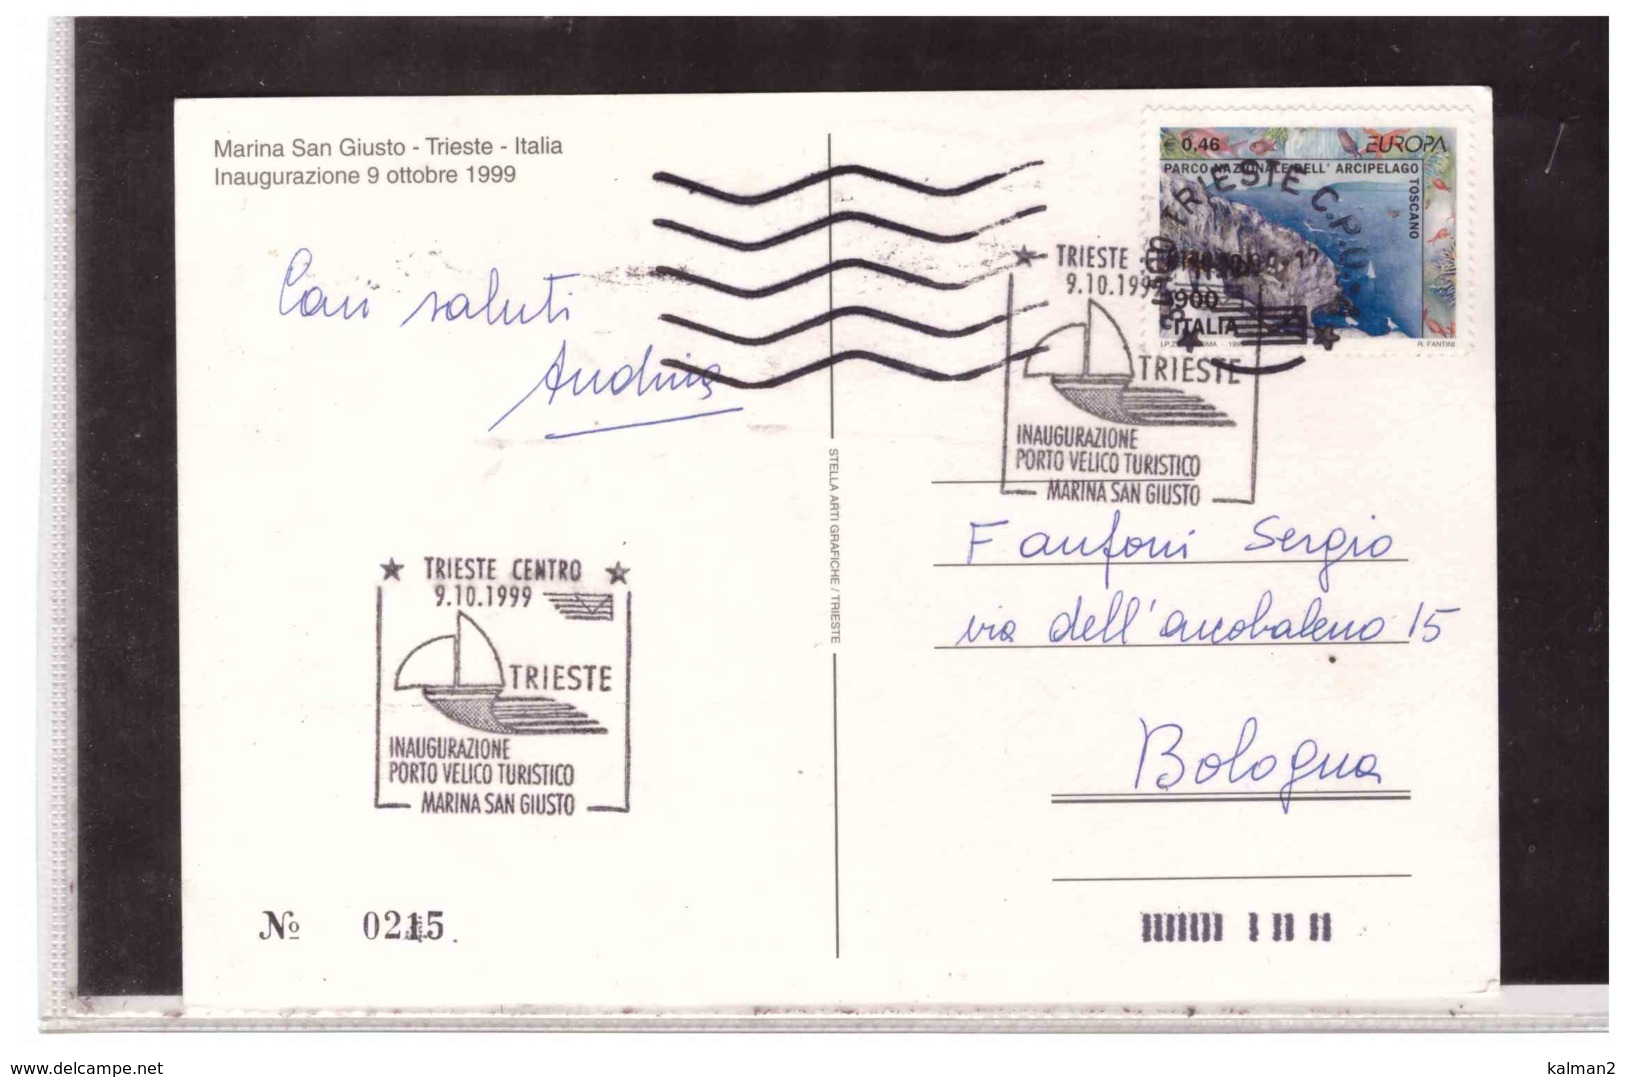 Marina San Giusto - Trieste - Italia
Inaugurazione 9 ottobre 1999
Cari saluti
€ 0,46 EUROPA
PARCO NAZIONALE DELL' ARCIPELAGO
TOSCANO
TRIESTE C.P.O.
900
ITALIA
R. FANTINI
TRIESTE
9.10.1999
TRIESTE
INAUGURAZIONE
PORTO VELICO TURISTICO
MARINA SAN GIUSTO
STELLA ARTI GRAFICHE / TRIESTE
Fanfoni Sergio
via dell'arcobaleno 15
Bologna
TRIESTE CENTRO
9.10.1999
TRIESTE
INAUGURAZIONE
PORTO VELICO TURISTICO
MARINA SAN GIUSTO
Nº 0215
www.delcampe.net
kalman2